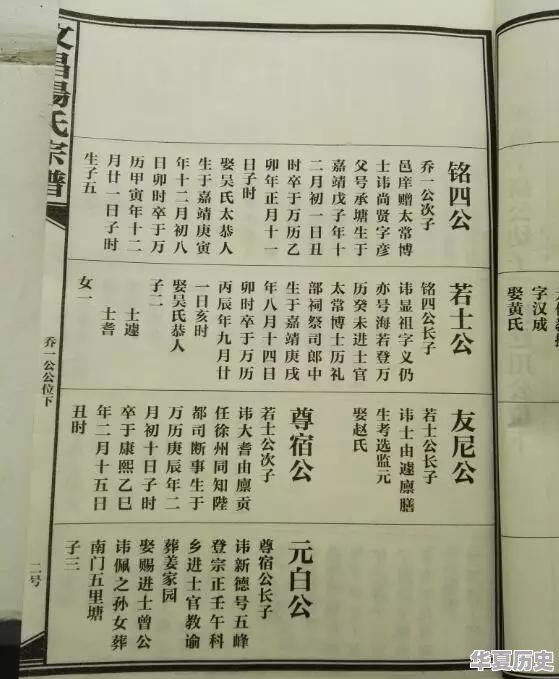 字汉成
娶黄氏
铭四公
乔一公次子
邑庠赠太常博
士讳尚贤字彦
父号承塘生于
嘉靖戊子年十
二月初一日丑
时卒于万历乙
卯年正月十一
日子时
娶吴氏太恭人
生于嘉靖庚寅
年十二月初八
日卯时卒于万
历甲寅年十二
月廿一日子时
生子五
若士公
铭四公长子
讳显祖字义仍
亦号海若登万
历癸未进士官
太常博士历礼
部祠祭司郎中
生于嘉靖庚戌
年八月十四日
卯时卒于万历
丙辰年九月廿
一日亥时
娶吴氏恭人
子二
士遽
士耆
女一
友尼公
若士公长子
讳士由遽廪膳
生考选监元
娶赵氏
尊宿公
若士公次子
讳大耆由廪贡
任徐州同知陛
都司断事生于
万历庚辰年二
月初十日子时
卒于康熙乙巳
年二月十五日
丑时
元白公
尊宿公长子
讳新德号五峰
登宗正壬午科
乡进士官教谕
葬姜家园
娶赐进士曾公
讳佩之孙女葬
南门五里塘
子三
文昌湯氏宗譜
乔一公公位下
二号
华夏历史